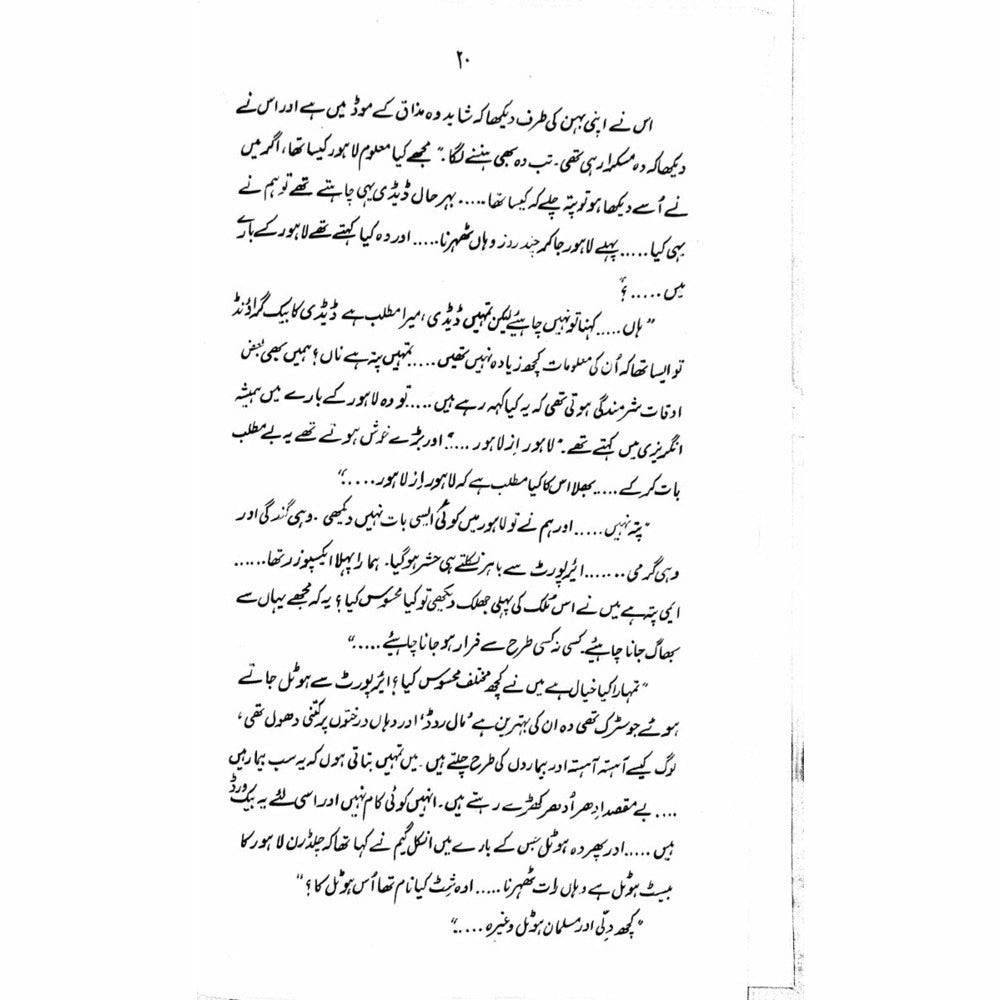 ۲۰
اس نے اپنی بہن کی طرف دیکھا کہ شاید وہ مذاق کے موڈ میں ہے اور اس نے
دیکھا کہ وہ مسکرا رہی تھی۔ تب وہ بھی ہنسنے لگا۔" مجھے کیا معلوم لاہور کیسا تھا، اگر میں
نے اُسے دیکھا ہو تو پتہ چلے کہ کیسا تھا..... بہر حال ڈیڈی یہی چاہتے تھے تو ہم نے
یہی کیا..... پہلے لاہور جا کر چند روز وہاں ٹھہرنا..... اور وہ کیا کہتے تھے لاہور کے بارے
میں.....؟"
"ہاں..... کہنا تو نہیں چاہیئے لیکن تمہیں ڈیڈی، میرا مطلب ہے ڈیڈی کا بیک گراؤنڈ
تو ایسا تھا کہ اُن کی معلومات کچھ زیادہ نہیں تھیں..... تمہیں پتہ ہے ناں؟ ہمیں بھی بعض
اوقات شرمندگی ہوتی تھی کہ یہ کیا کہہ رہے ہیں..... تو وہ لاہور کے بارے میں ہمیشہ
انگریزی میں کہتے تھے۔ "لاہور اِز لاہور....." اور بڑے خوش ہوتے تھے یہ بے مطلب
بات کر کے.... بھلا اس کا کیا مطلب ہے کہ لاہور اِز لاہور....."
"پتہ نہیں..... اور ہم نے تو لاہور میں کوئی ایسی بات نہیں دیکھی۔ وہی گندگی اور
وہی گرمی....... ائیرپورٹ سے باہر نکلتے ہی حشر ہو گیا۔ ہمارا پہلا ایکسپوزر تھا......
ایمی پتہ ہے میں نے اس ملک کی پہلی جھلک دیکھی تو کیا محسوس کیا؟ یہ کہ مجھے یہاں سے
بھاگ جانا چاہیئے۔ کسی نہ کسی طرح سے فرار ہو جانا چاہیئے....."
"تمہارا کیا خیال ہے میں نے کچھ مختلف محسوس کیا؟ ائیرپورٹ سے ہوٹل جاتے
ہوئے جو سڑک تھی وہ ان کی بہترین ہے 'مال روڈ' اور وہاں درختوں پر کتنی دھول تھی،
لوگ کیسے آہستہ آہستہ اور بیماروں کی طرح چلتے ہیں۔ میں تمہیں بتاتی ہوں کہ یہ سب بیمار ہیں
.... بے مقصد اِدھر اُدھر کھڑے رہتے ہیں۔ انہیں کوئی کام نہیں اور اسی لئے یہ بیک ورڈ
ہیں..... اور پھر وہ ہوٹل جس کے بارے میں انکل گیم نے کہا تھا کہ چلڈرن لاہور کا
بیسٹ ہوٹل ہے وہاں رات ٹھہرنا..... اوہ شِٹ کیا نام تھا اُس ہوٹل کا؟"
"کچھ دِلّی اور مسلمان ہوٹل وغیرہ....."